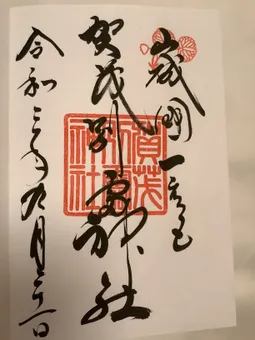 山城國一之宮
賀茂別雷神社
賀茂別雷神社
令和三年九月日